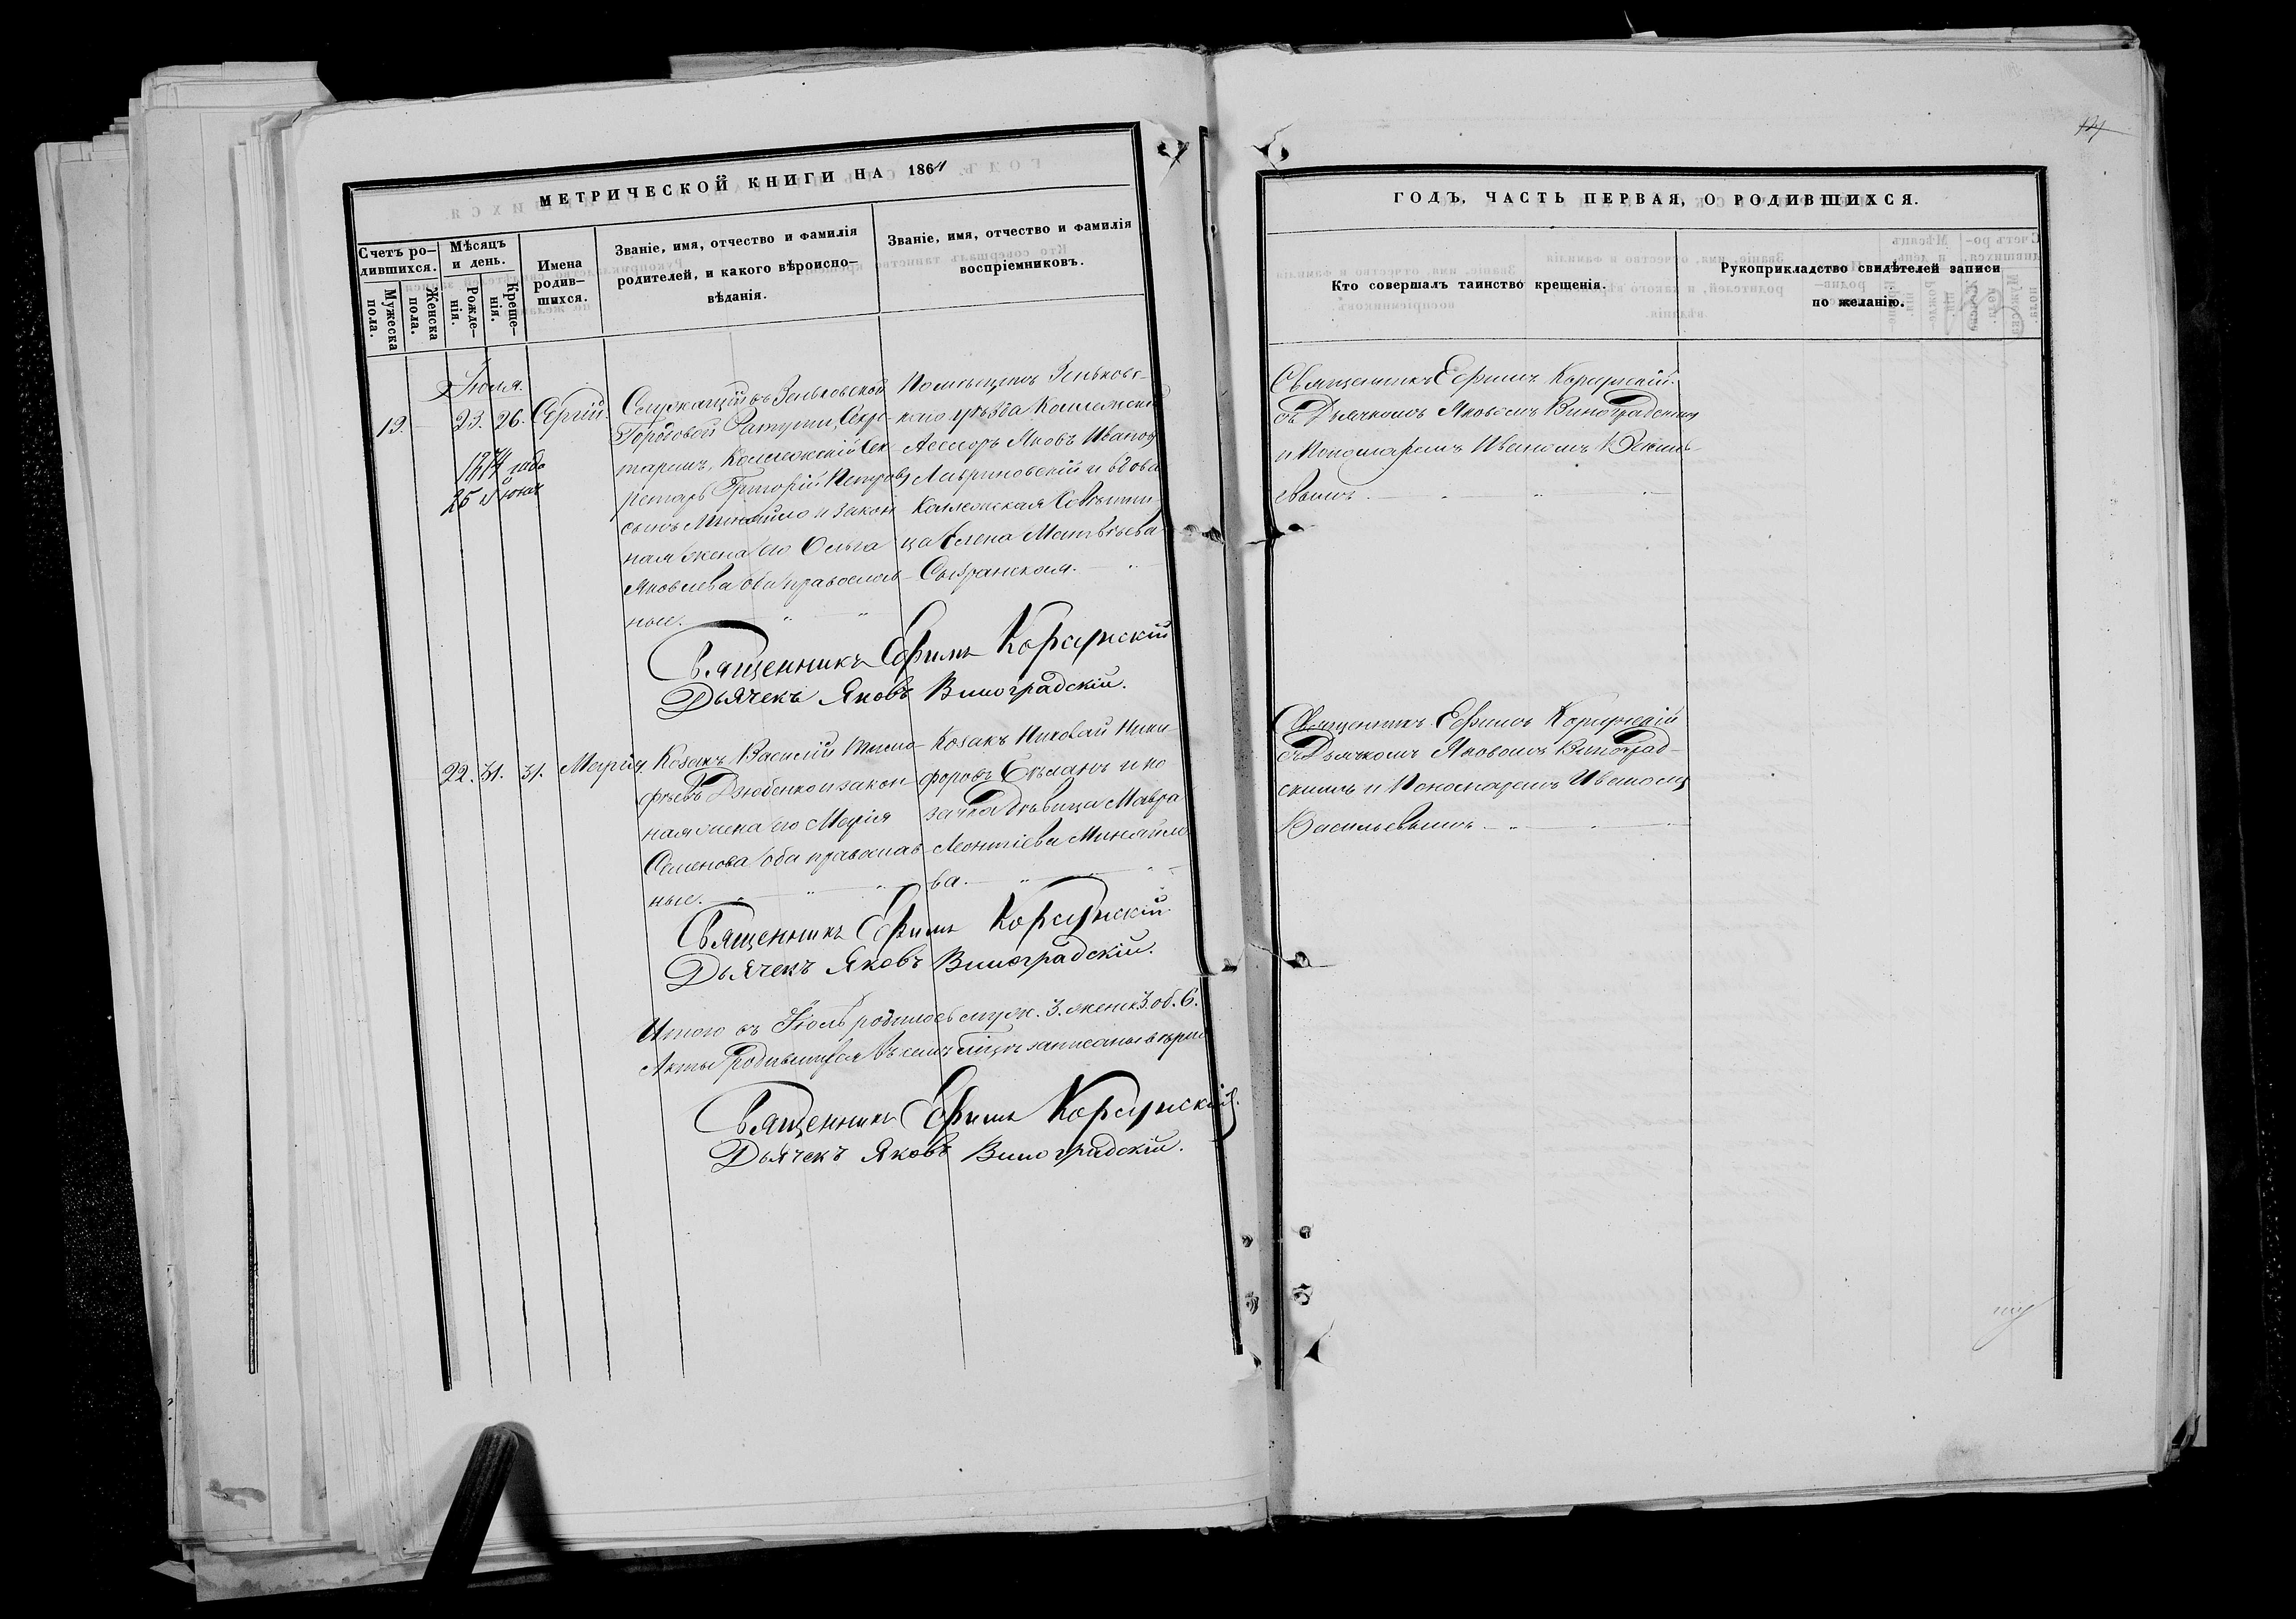 МЕТРИЧЕСКОЙ КНИГИ НА 1861
Счетъ ро-
дившихся.
Мужеска
пола.
Женска
пола.
Мѣсяцъ
и день.
Рожде-
нія.
Креще-
нія.
Имена
родив-
шихся.
Званіе, имя, отчество и фамилія
родителей, и какого вѣроиспо-
вѣданія.
Званіе, имя, отчество и фамилія
воспріемниковъ.
Іюля.
19. 23. 26. Сергій.
25 Іюня
Служащій въ Зеньковской
Городовой Ратуши, Секре-
таремъ, Коллежскій Сек-
ретарь Григорій Петровъ
сынъ и закон
ная жена его Ольга
Яковлева оба православ-
ные.
Помѣщикъ Зеньковс-
каго уѣзда Коллежскій
Асессоръ Яковъ Ивановъ
Лавриновскій и вдова
Коллежская Совѣтни
ца Елена Матвѣева
Священникъ Ефимъ Корсунскій
Дьячекъ Яковъ Виноградскій.
22. 31. 31. Марія
Козакъ Василій Тимо-
фѣевъ Дзюбенко и закон
ная жена его Марія
Семенова оба православ-
ные.
Козакъ Николай Ники
форовъ и ко
зачка дѣвица Мавра
Леонтіева Михайло
ва.
Священникъ Ефимъ Корсунскій.
Дьячекъ Яковъ Виноградскій.
Итого въ Іюлѣ родилось муж. 3. женск. 3. об. 6.
Акты родившихся въ семъ мѣсяцѣ записаны вѣрно
Священникъ Ефимъ Корсунскій.
Дьячекъ Яковъ Виноградскій.
ГОДЪ, ЧАСТЬ ПЕРВАЯ, О РОДИВШИХСЯ.
Кто совершалъ таинство крещенія.
Рукоприкладство свидѣтелей записи
по желанію.
Священникъ Ефимъ Корсунскій
съ Дьячкомъ Яковомъ Виноградскимъ
и Пономаремъ Иваномъ Василь-
евымъ.
Священникъ Ефимъ Корсунскій
съ Дьячкомъ Яковомъ Виноград-
скимъ и Пономаремъ Иваномъ
Васильевымъ